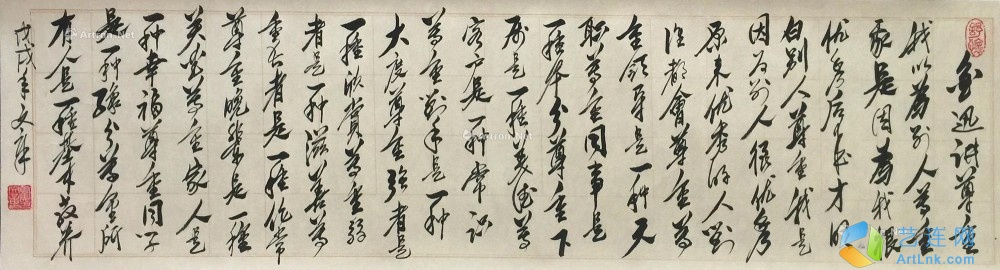 鲁迅讲尊重
我以为别人尊重
我是因为我很
优秀后来才明
白别人尊重我是
因为别人很优秀
原来优秀的人对
谁都会尊重尊
重领导是一种天
职尊重同事是
一种本分尊重下
属是一种美德尊
重客户是一种常识
尊重对手是一种
大度尊重强者是
一种欣赏尊重弱
者是一种慈善尊
重长者是一种伦常
尊重晚辈是一种
关爱尊重家人是
一种幸福尊重同学
是一种缘分尊重所
有人是一种基本教养
戊戌年文军
艺连网
ArtLnk.com